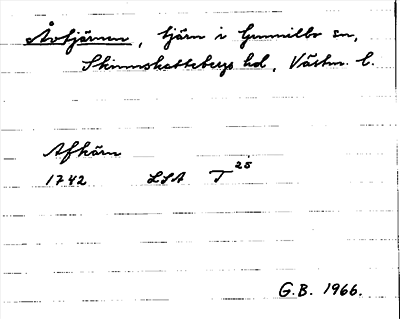 Åvtjärnen, tjärn i Gunnilbo sn,
Skinnskattebergs hd, Västm. l.
Afkärn
1742 LSA T 25
G.B. 1966.